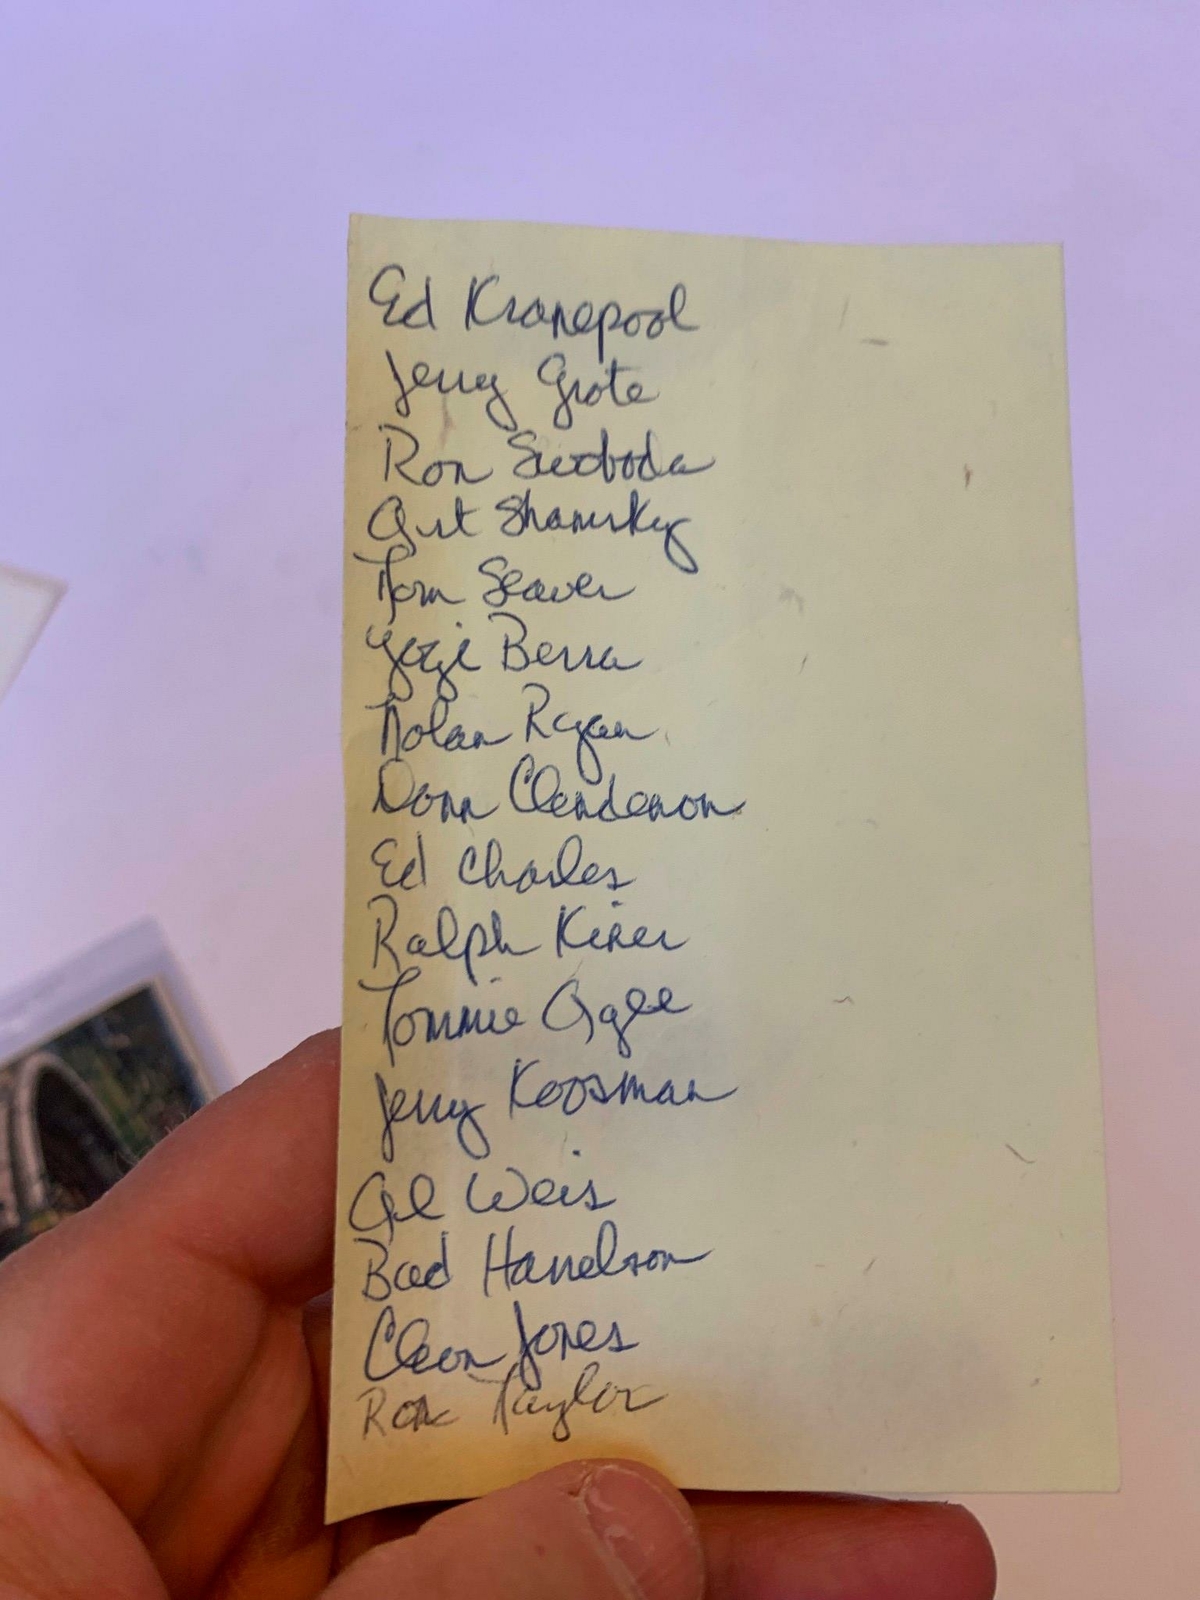 Ed Kranepool
Jerry Grote
Ron Swoboda
Art Shamsky
Tom Seaver
Yogi Berra
Nolan Ryan
Donn Clendenon
Ed Charles
Ralph Kiner
Tommie Agee
Jerry Koosman
Al Weis
Bud Harrelson
Cleon Jones
Ron Taylor